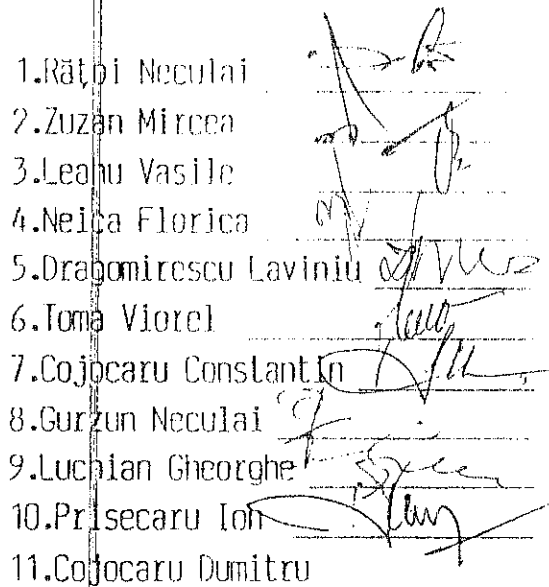 1.Rățoi Neculai
2.Zuzan Mircea
3.Leanu Vasile
4.Neica Florica
5.Dragomirescu Laviniu
6.Toma Viorel
7.Cojocaru Constantin
8.Gurzun Neculai
9.Luchian Gheorghe
10.Prisecaru Ion
11.Cojocaru Dumitru